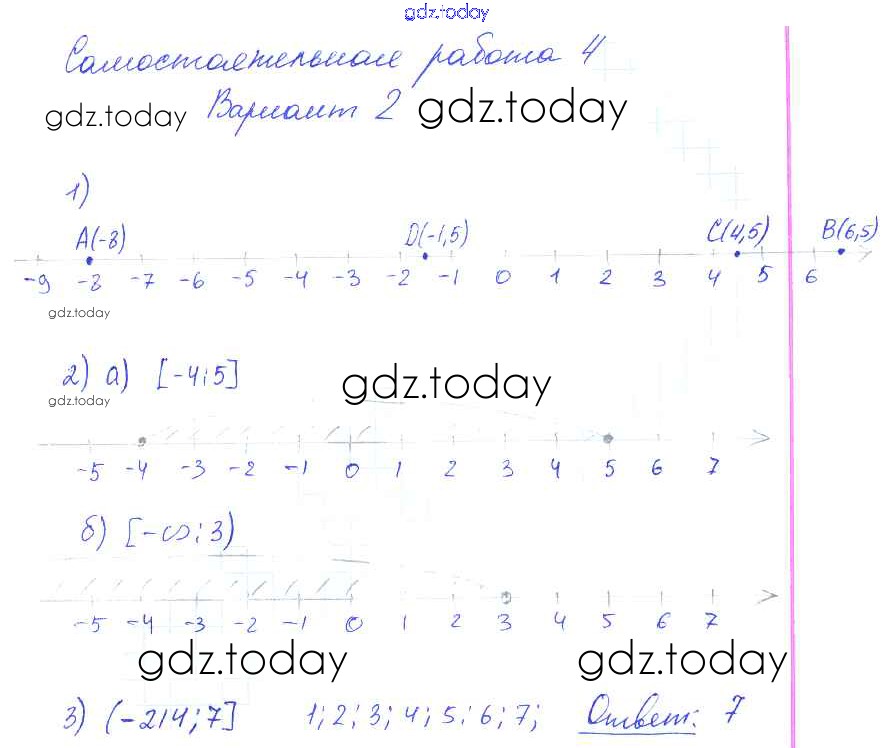 gdz.today
Самостоятельная работа 4
gdz.today Вариант 2 gdz.today
1)
A(-8) D(-1,5) C(4,5) B(6,5)
-9 -8 -7 -6 -5 -4 -3 -2 -1 0 1 2 3 4 5 6
gdz.today
2) а) [-4;5] gdz.today
gdz.today
-5 -4 -3 -2 -1 0 1 2 3 4 5 6 7
б) [-∞;3)
-5 -4 -3 -2 -1 0 1 2 3 4 5 6 7
gdz.today gdz.today
3) (-2,4;7] 1; 2; 3; 4; 5; 6; 7; Ответ: 7